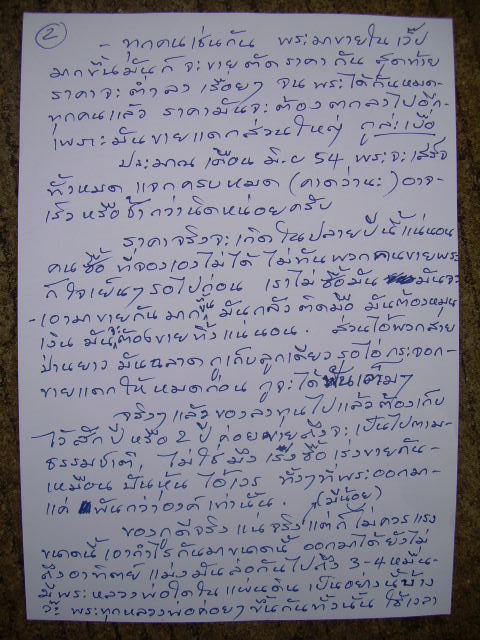 2
- ทุกคนเช่นกัน พระมาขายในเว็ป
มากขึ้นมันก็จะขายตัดราคากัน สุดท้าย
ราคาจะต่ำลงเรื่อยๆ จนพระได้กันหมด-
ทุกคนแล้ว ราคามันจะต้องตกลงไปอีก-
เพราะมันขายแดกส่วนใหญ่ กูล่ะเบื่อ
ประมาณเดือน มิ.ย 54 พระจะเสร็จ
ทั้งหมด แจกครบหมด (คาดว่านะ) อาจ-
เร็วหรือช้ากว่านิดหน่อยครับ
ราคาจริงจะเกิดในปลายปีนี้แน่นอน
คนซื้อ ที่จองเองไม่ได้ ไม่ทันพวกคนขายพระ
ก็ใจเย็นๆรอไปก่อน เราไม่ซื้อมัน มันจะ
-เอามาขายกันมากขึ้น มันกลัวติดมือ มันต้องหมุน
เงิน มันจะต้องขายทิ้งแน่นอน. ส่วนไอ้พวกสาย
ป่านยาว มันฉลาด กูเก็บลูกเดียว รอไอ่กระจอก-
ขายแดกให้หมดก่อน กูจะได้ฟันเต็มๆ
จริงๆแล้วของลงทุนไปแล้วต้องเก็บ
ไว้สักปี หรือ 2 ปี ค่อยขายถึงจะเป็นไปตาม-
ธรรมชาติ, ไม่ใช่มึงเร่งซื้อเร่งขายกัน-
เหมือนปั่นหุ้น ไอ้เวร ทั้งๆที่พระออกมา-
แค่ พันกว่าองค์เท่านั้น. (มีน้อย)
ของกูดีจริง แน่จริง แต่ก็ไม่ควรแรง
ขนาดนี้ เอากำไรกันมาขนาดนี้ ออกมาได้ยังไม่
ถึงอาทิตย์ แม่งมันล่อกันไปถึง 3-4 หมื่น-
มีพระหลวงพ่อใดในแผ่นดิน เป็นอย่างนี้บ้าง
วะ พระทุกหลวงพ่อค่อยๆขึ้นกันทั้งนั้น ใช้เวลา